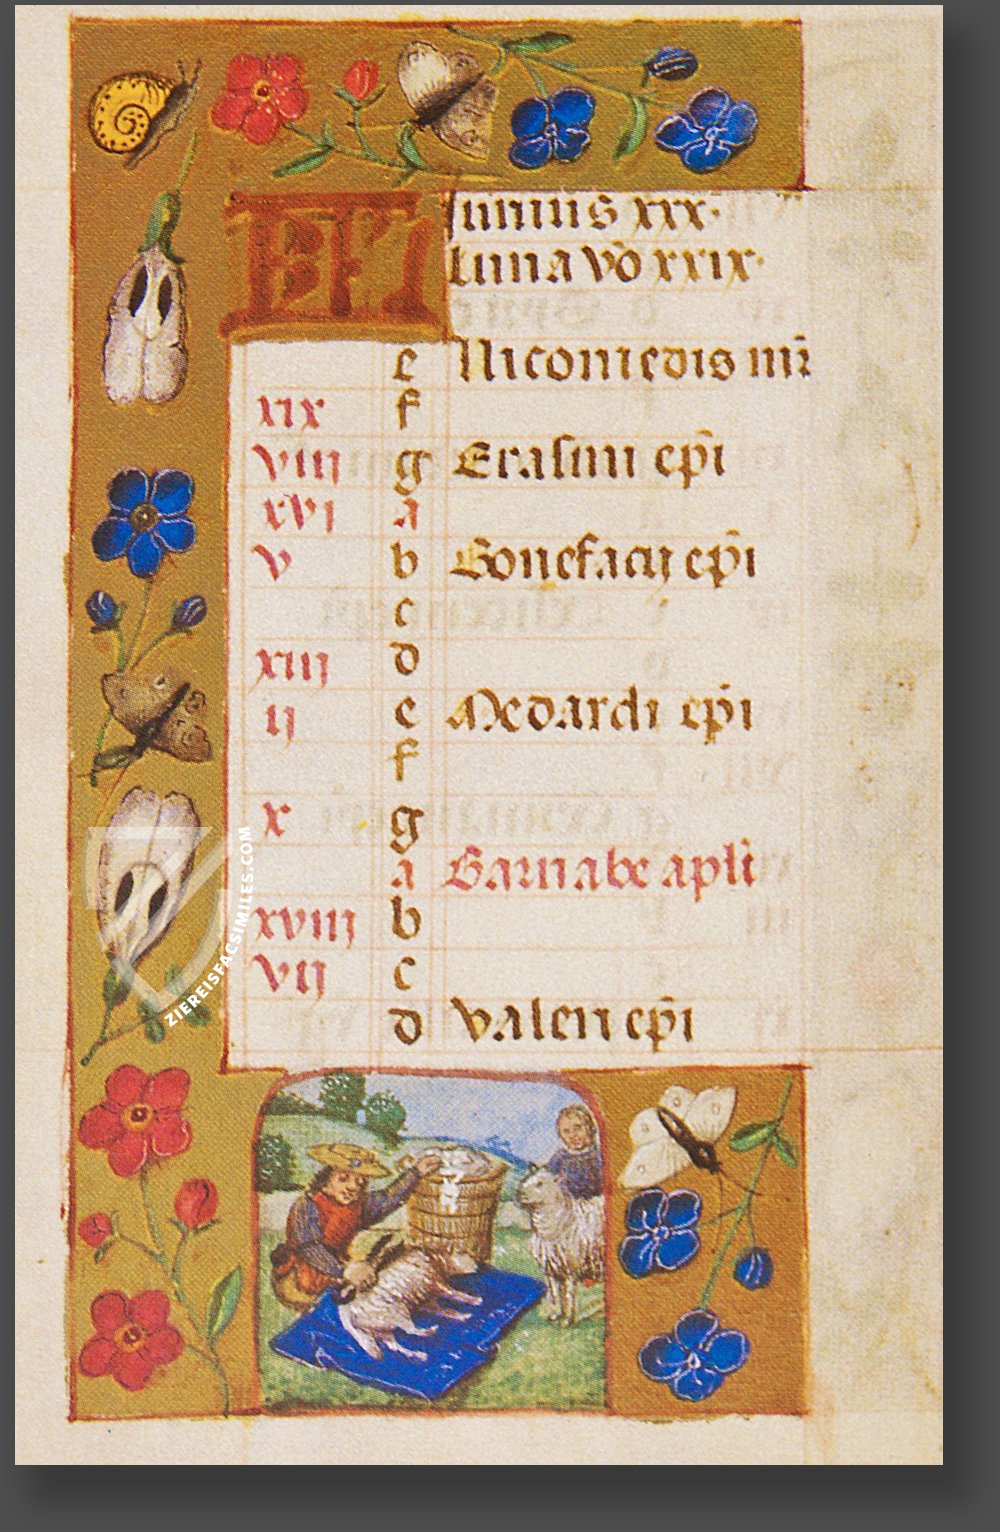 KL Junius xxx.
Luna vo xxix.
e Nicomedis mr̄
xix f
viij g Erasmi ep̄i
xvj a
v b Bonefacij ep̄i
c
xiij d
ij e Medardi ep̄i
f
x g
a Barnabe apl̄i
xviij b
vij c
d Valeri ep̄i
ZIEREISFACSIMILES.COM